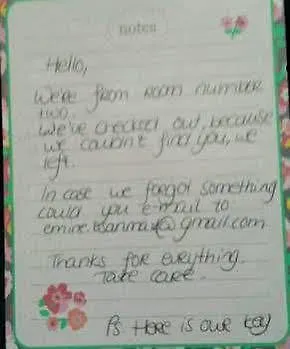 notes
Hello,
We're from room number
two.
We've checked out, because
we couldn't find you, we
left.
In case we forgot something
could you e-mail to
@gmail.com
Thanks for everything.
Take care.
Ps Here is our key